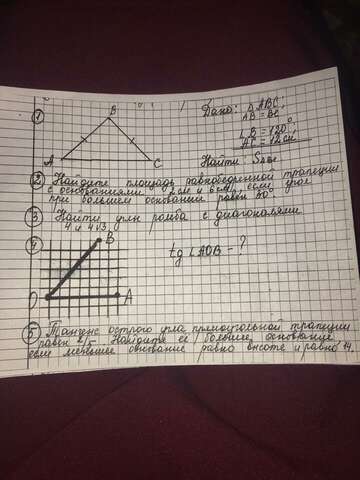 ① B Дано: △ABC;
AB = BC
∠B = 120°
A C AC = 12 см
Найти: S△ABC
② Найдите площадь равнобедренной трапеции
с основаниями 2см и 6см, если угол
при большем основании равен
③ Найти углы ромба с диагоналями
4 и 4√3.
④ B tg ∠AOB - ?
O A
⑤ Тангенс острого угла прямоугольной трапеции
равен 2/5. Найдите её большее основание
если меньшее основание равно высоте и равно 14.